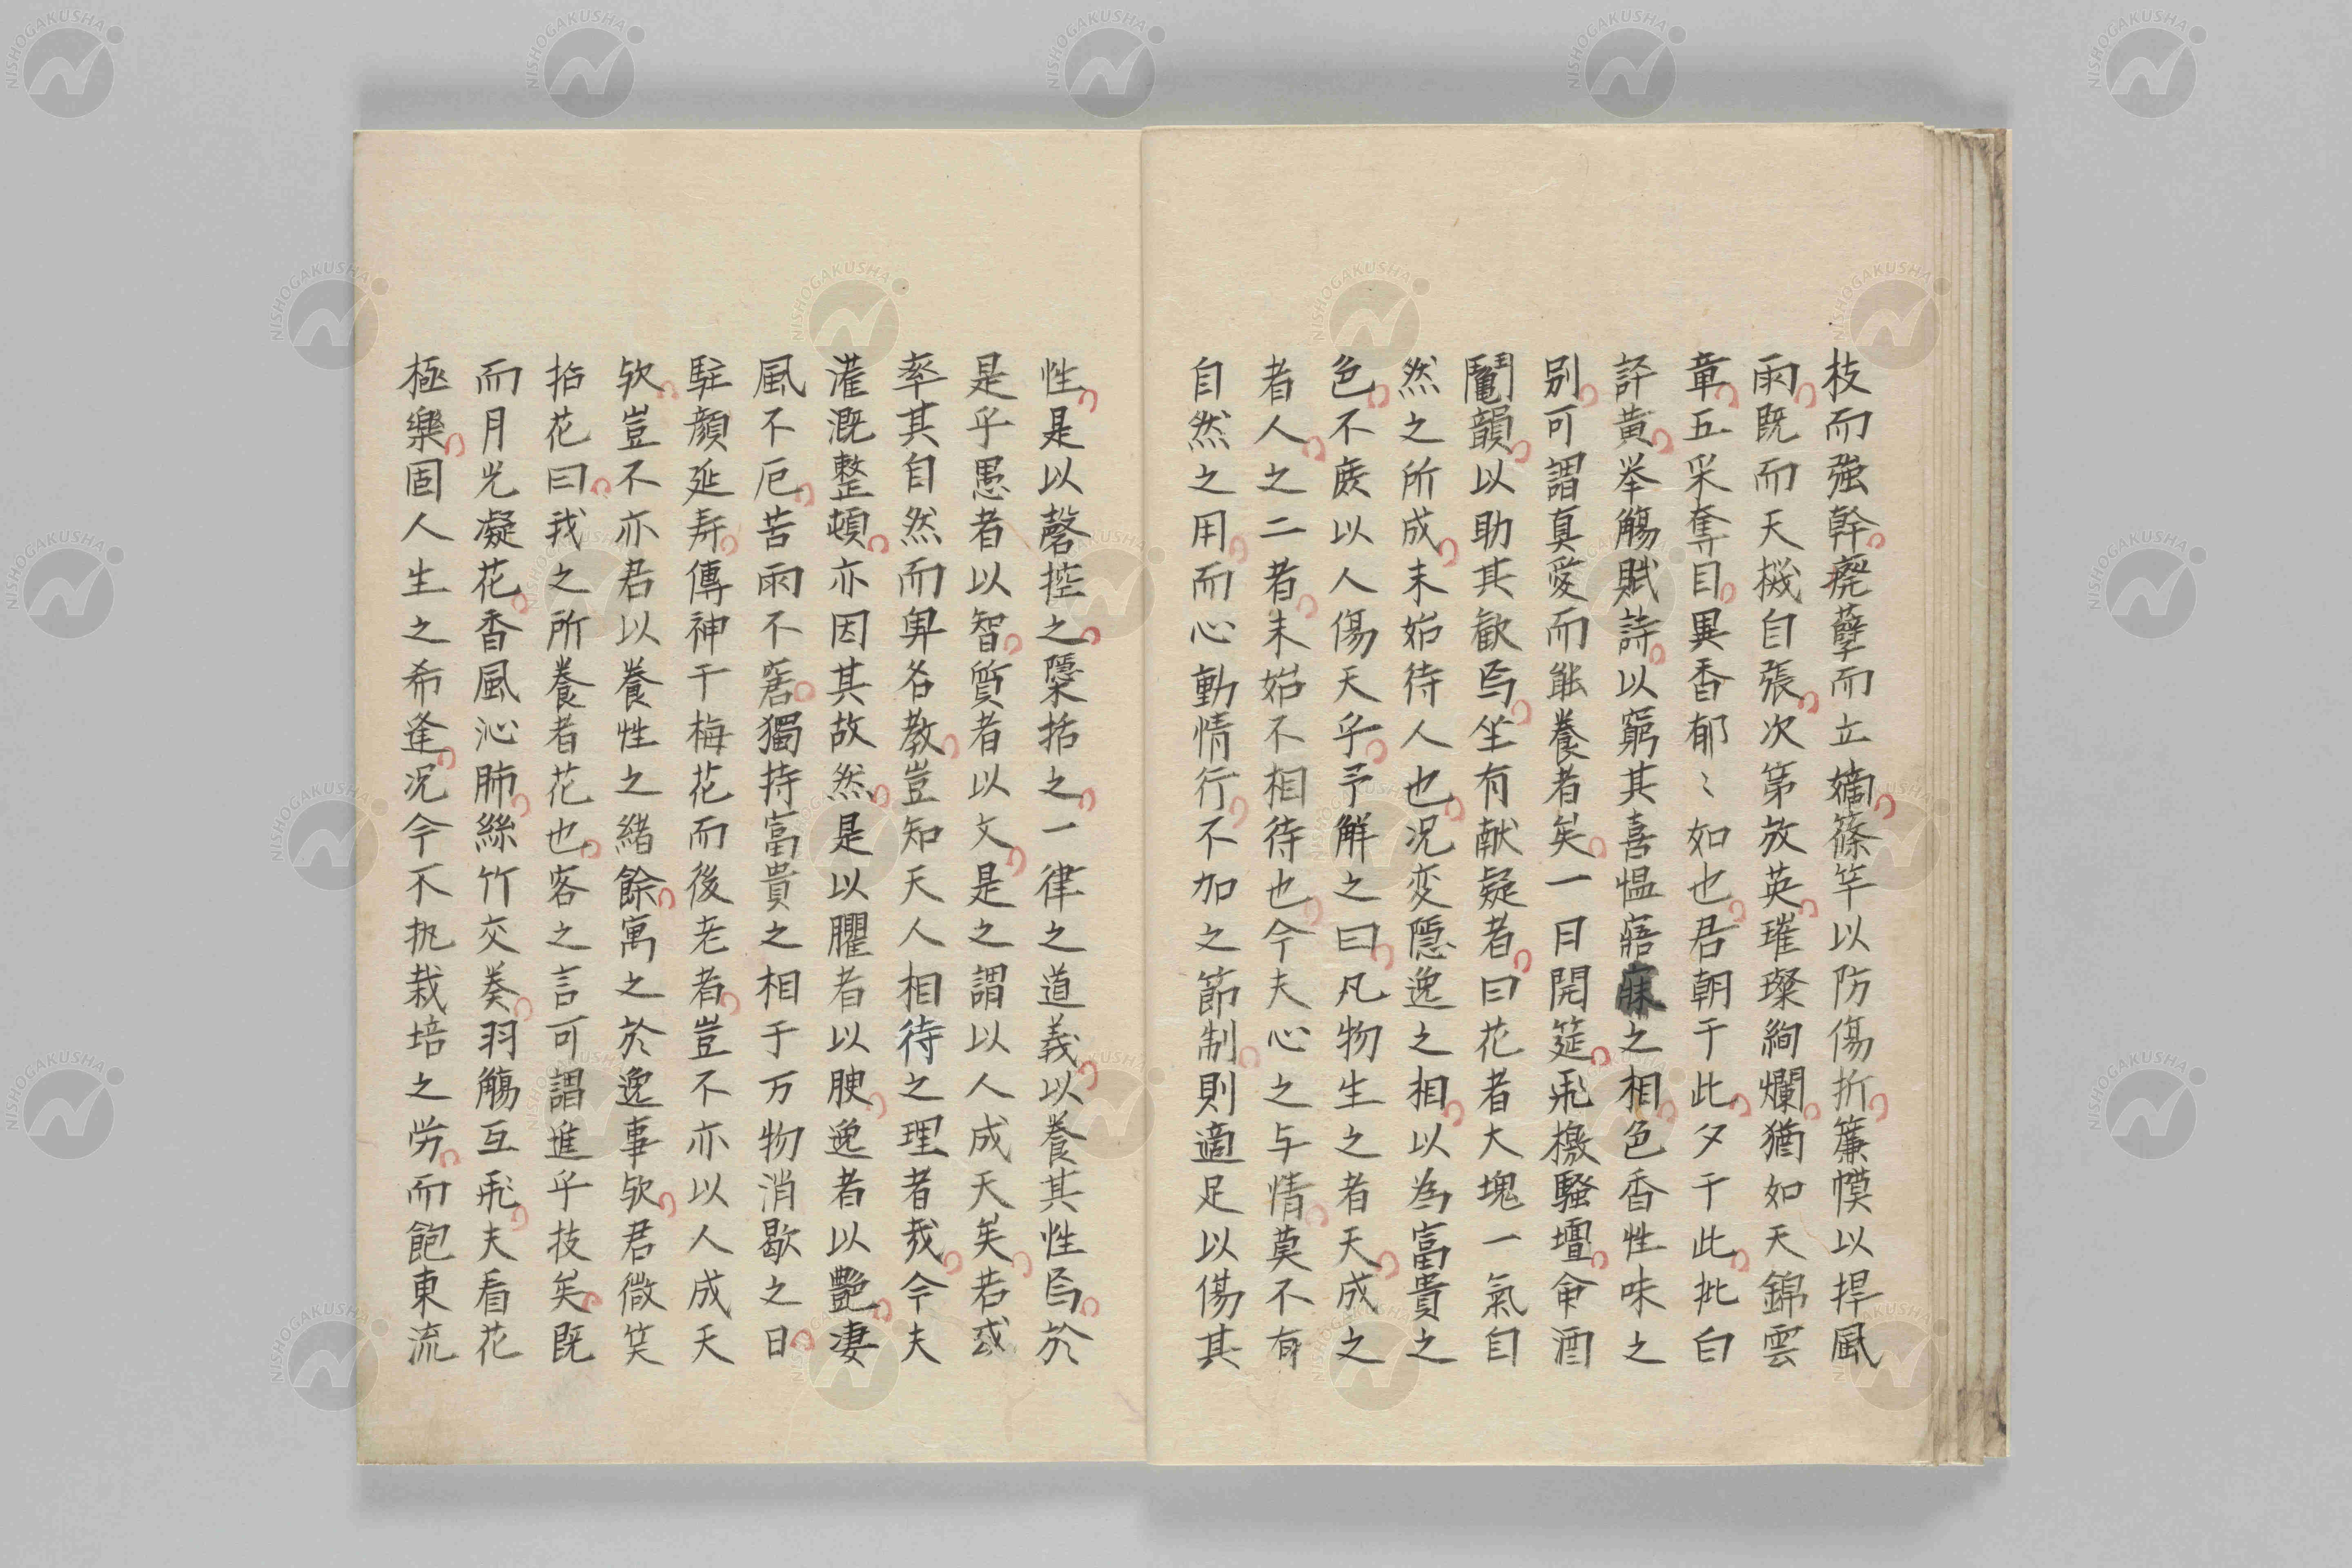 枝而強幹癈孽而立嫡篠竿以防傷折簾幙以捍風
雨既而天機自張次第放英璀璨絢爛猶如天錦雲
章五采奪目異香郁〻如也君朝于此夕于此批白
評黄举觴賦詩以窮其喜愠寤寐之相色香性味之
别可謂真愛而能養者矣一日開筵飛檄騷壇命酒
鬮韻以助其歓焉坐有献疑者曰花者大塊一氣自
然之所成未始待人也况変隠逸之相以為富貴之
色不庶以人傷天乎予解之曰凡物生之者天成之
者人之二者未始不相待也今夫心之与情莫不有
自然之用而心動情行不加之節制則適足以傷其
性是以磬控之隱括之一律之道義以養其性焉於
是乎愚者以智質者以文是之謂以人成天矣若或
率其自然而畀名教豈知天人相待之理者哉今夫
灌溉整頓亦因其故然是以臞者以腴逸者以艷凄
風不厄苦雨不窘獨持富貴之相于万物消歇之日
駐顔延寿傳神于梅花而後老者豈不亦以人成天
欤豈不亦君以養性之緒餘寓之於逸事欤君微笑
拈花曰我之所養者花也客之言可謂進乎技矣既
而月光凝花香風沁肺絲竹交奏羽觴互飛夫看花
極樂固人生之希逢况今不执栽培之労而飽東流